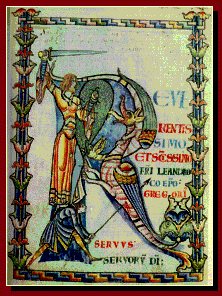 REVE
RENTIS
SIMO
ET SCISSIMO
FRI LEANDRO
COEPO
GREGORI
SERVVS
SERVORV DI: